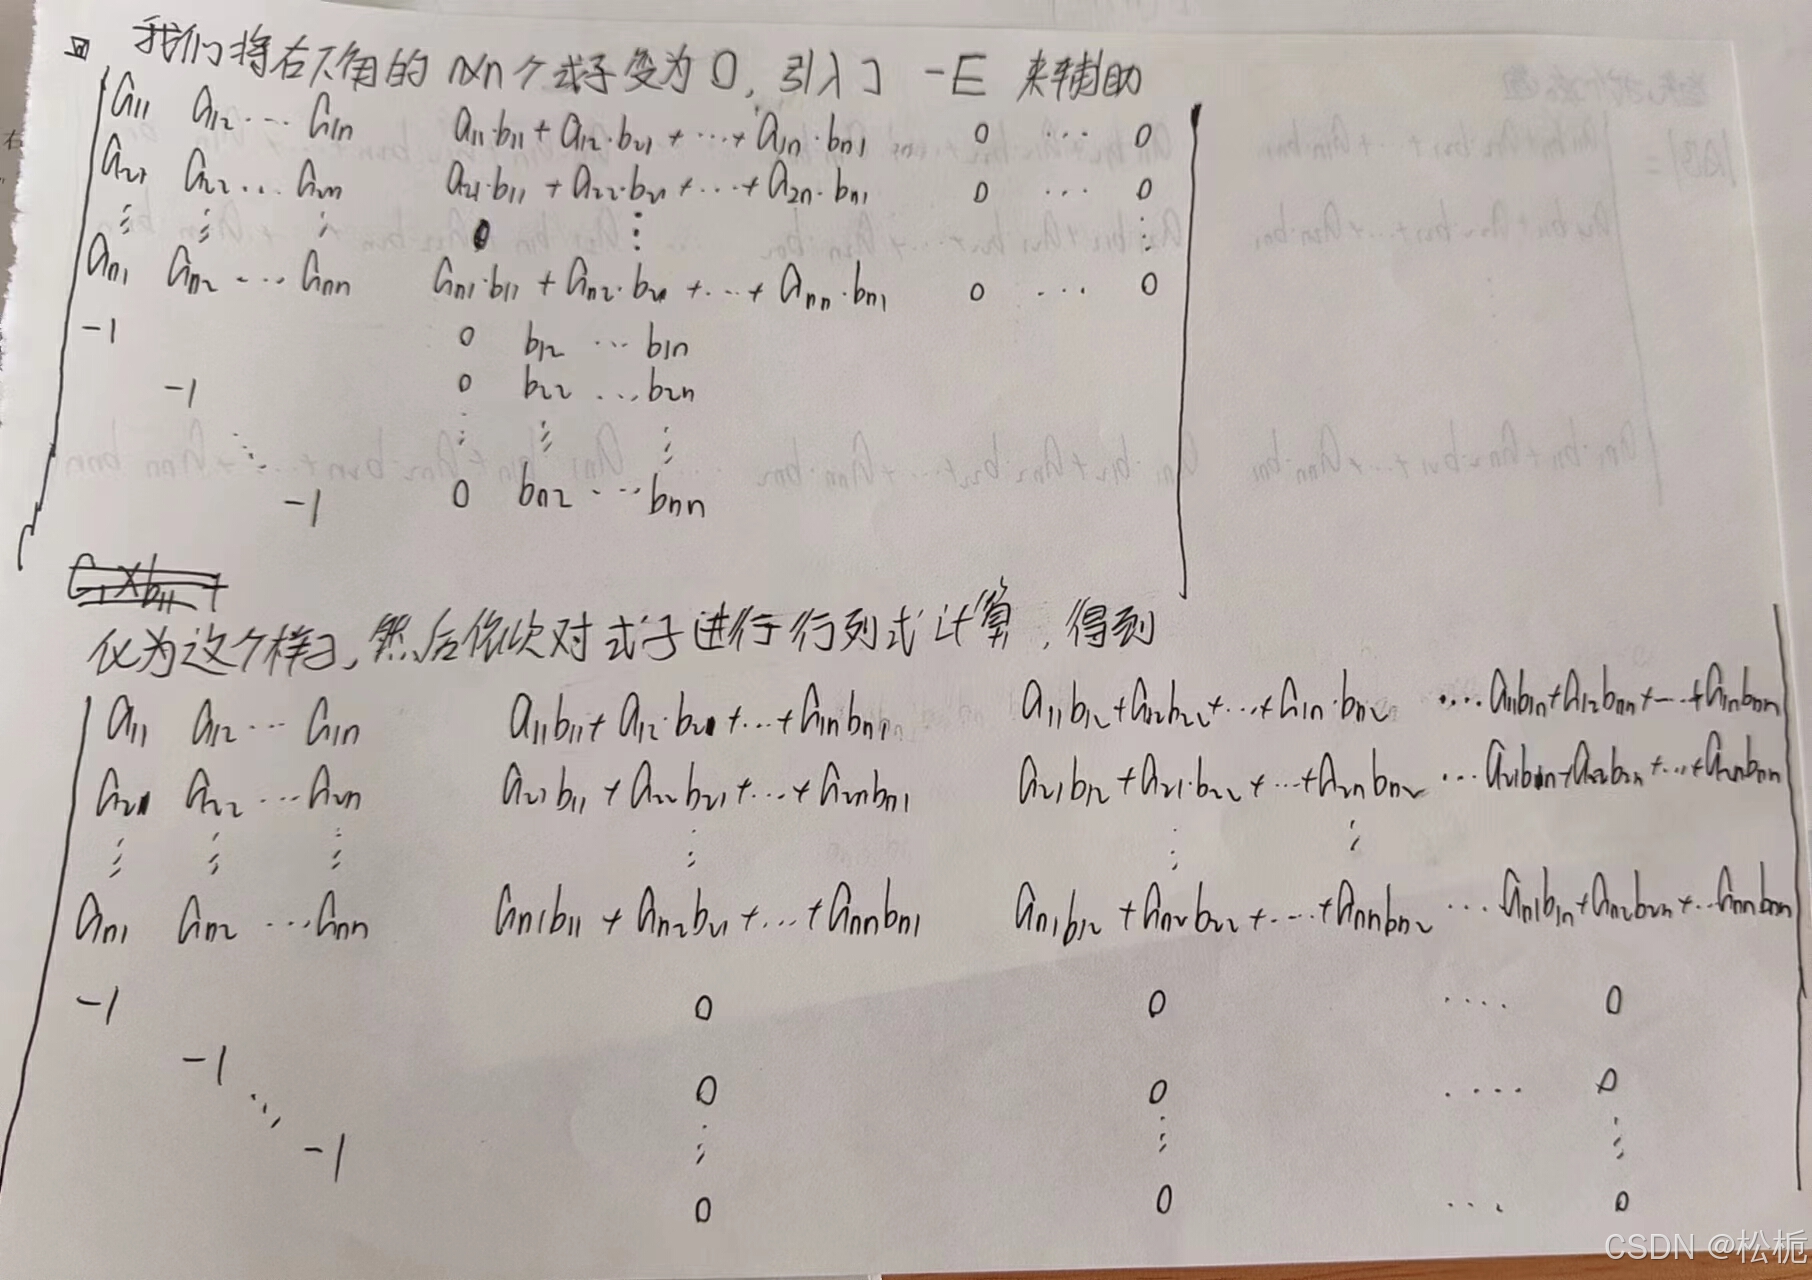 我们将右下角的 n×n 个式子变为 0, 引入了 -E 来辅助
a11 a12 ... a1n a11·b11 + a12·b21 + ... + a1n·bn1 0 ... 0
a21 a22 ... a2n a21·b11 + a22·b21 + ... + a2n·bn1 0 ... 0
⋮ ⋮ ⋮ ⋮ ⋮
an1 an2 ... ann an1·b11 + an2·b21 + ... + ann·bn1 0 ... 0
-1 0 b12 ... b1n
-1 0 b22 ... b2n
⋱ ⋮ ⋮ ⋮
-1 0 bn2 ... bnn
化为这个样子, 然后依次对式子进行行列式计算, 得到
a11 a12 ... a1n a11b11 + a12·b21 + ... + a1nbn1 a11b12 + a12b22 + ... + a1n·bn2 ... a11b1n + a12bnn + ... + a1nbnn
a21 a22 ... a2n a21b11 + a22b21 + ... + a2nbn1 a21b12 + a21·b22 + ... + a2nbn2 ... a21b1n + a22b2n + ... + a2nbnn
⋮ ⋮ ⋮ ⋮ ⋮ ⋮
an1 an2 ... ann an1b11 + an2b21 + ... + annbn1 an1b12 + an2b22 + ... + annbn2 ... an1b1n + an2b2n + ... annbnn
-1 0 0 .... 0
-1 0 0 .... 0
⋱ ⋮ ⋮ ⋮
-1
0 0 ... 0
CSDN @松栀